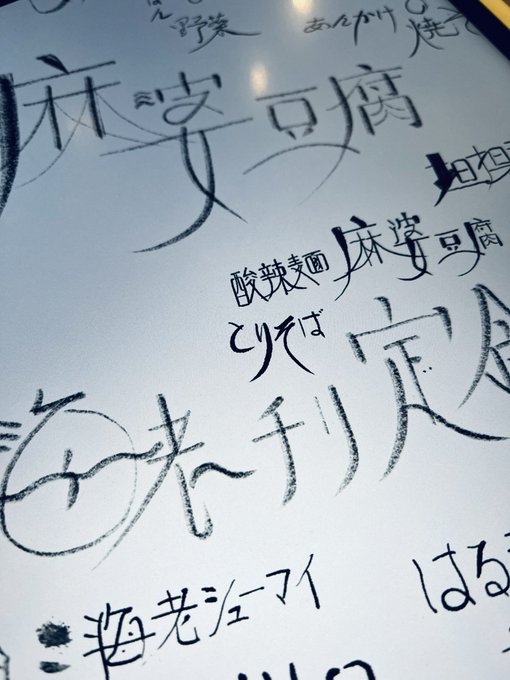 野菜 あんかけ 焼そ
麻婆豆腐
担担
酸辣麺 麻婆豆腐
とりそば
海老チリ定食
海老シューマイ はる